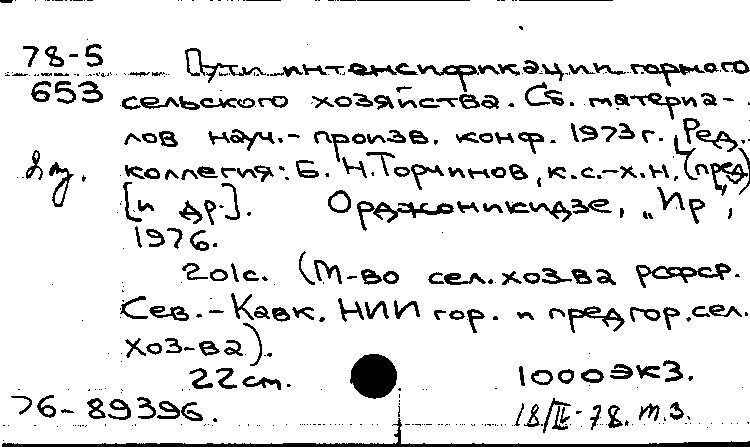 78-5 Пути интенсификации горного
653 сельского хозяйства. Сб. материа-
лов науч.-произв. конф. 1973 г. [Ред.
коллегия: Б. Н. Торчинов, к.с.-х.н. (пред)
[и др.]. Орджоникидзе, „Ир",
1976.
201с. (М-во сел. хоз-ва РСФСР.
Сев.-Кавк. НИИ гор. и предгор. сел.
хоз-ва).
22 cm. 1000 экз.
76-89396. 18/IV-78. т.з.